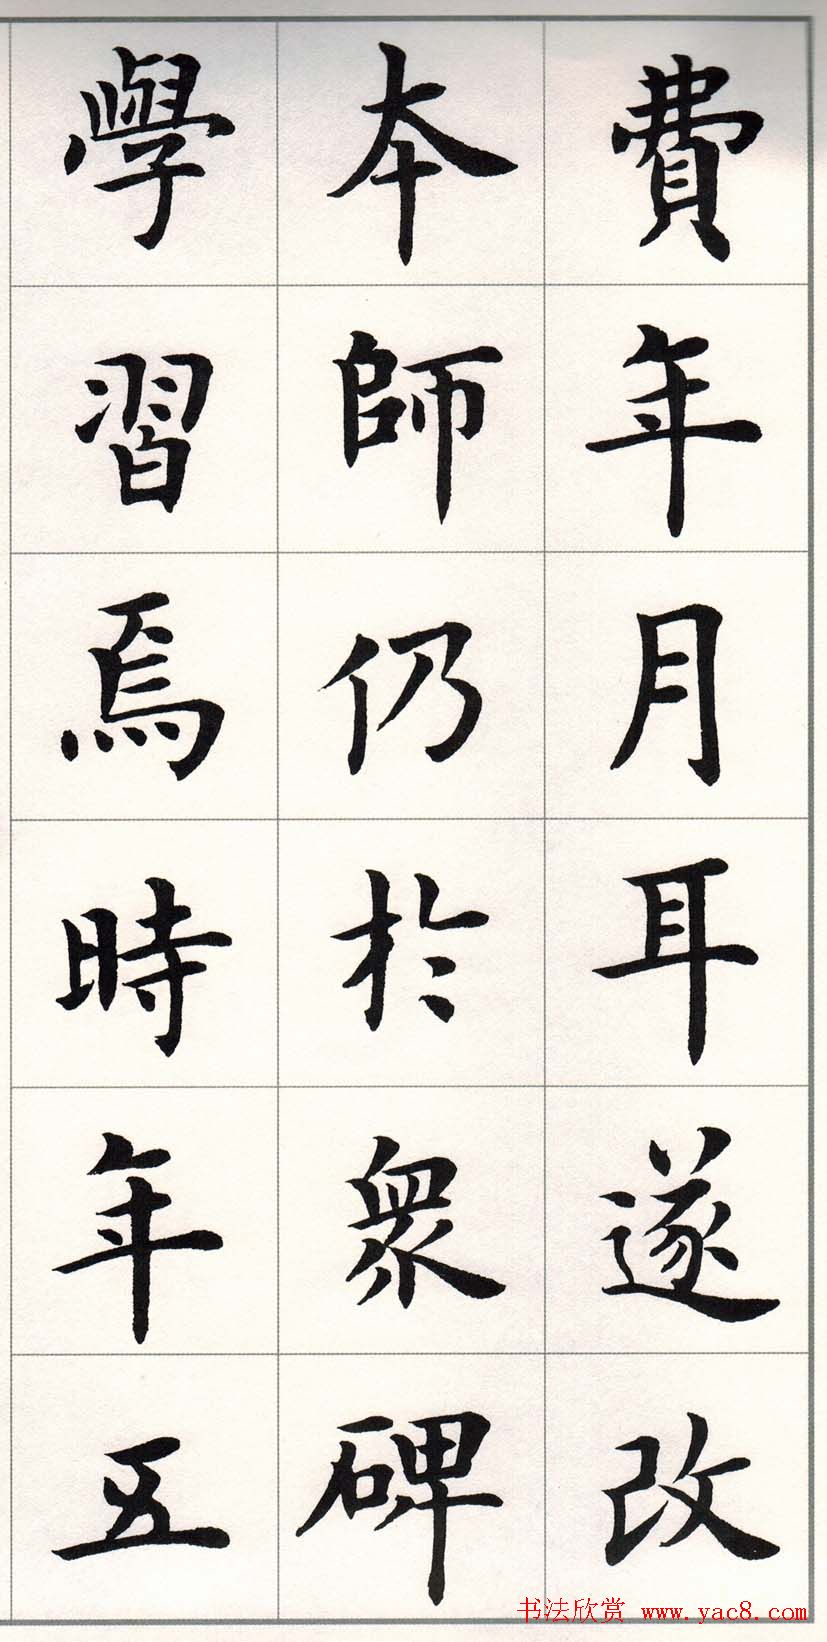 費年月耳遂改
本師仍於衆碑
學習焉時年五
书法欣赏 www.yac8.com